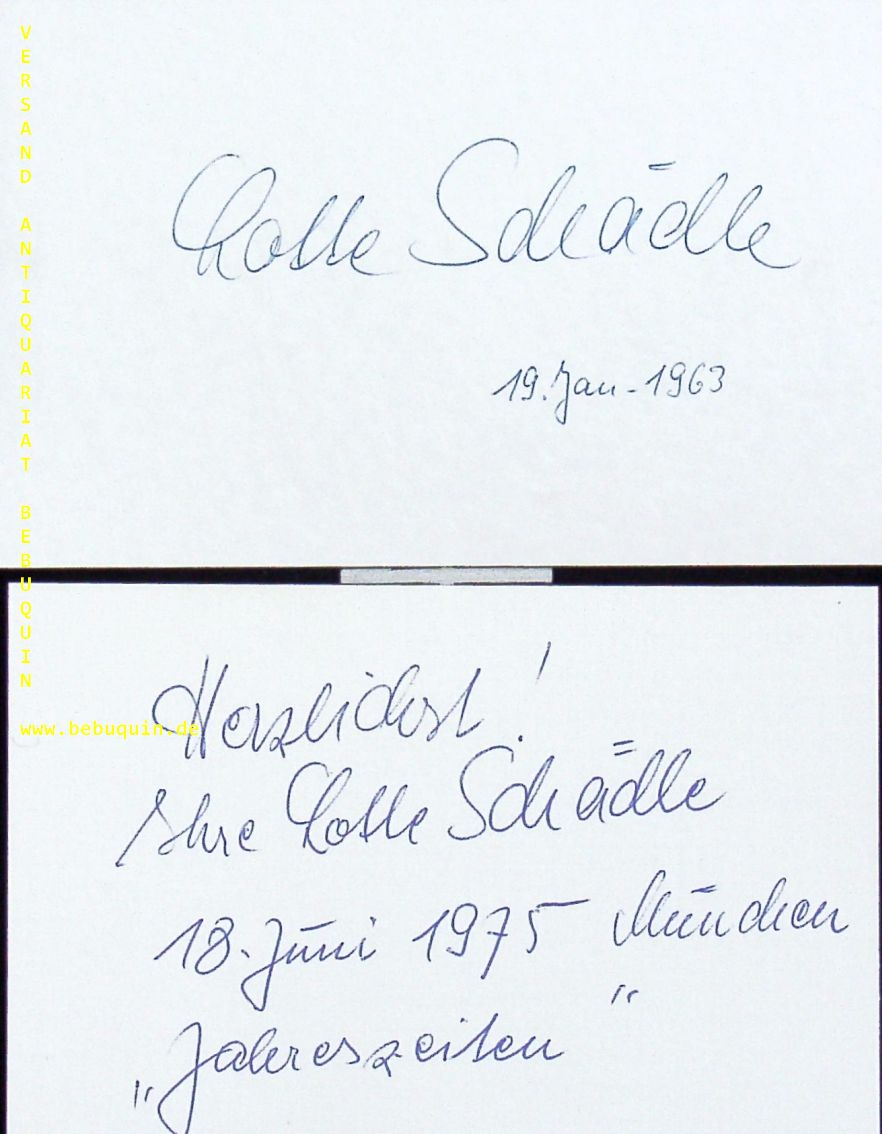 VERSAND ANTIQUARIAT BEBUQUIN
www.bebuquin.de
Lotte Schädle
19. Jan - 1963
Herzlichst!
Ihre Lotte Schädle
18. Juni 1975 München
„Jahreszeiten“